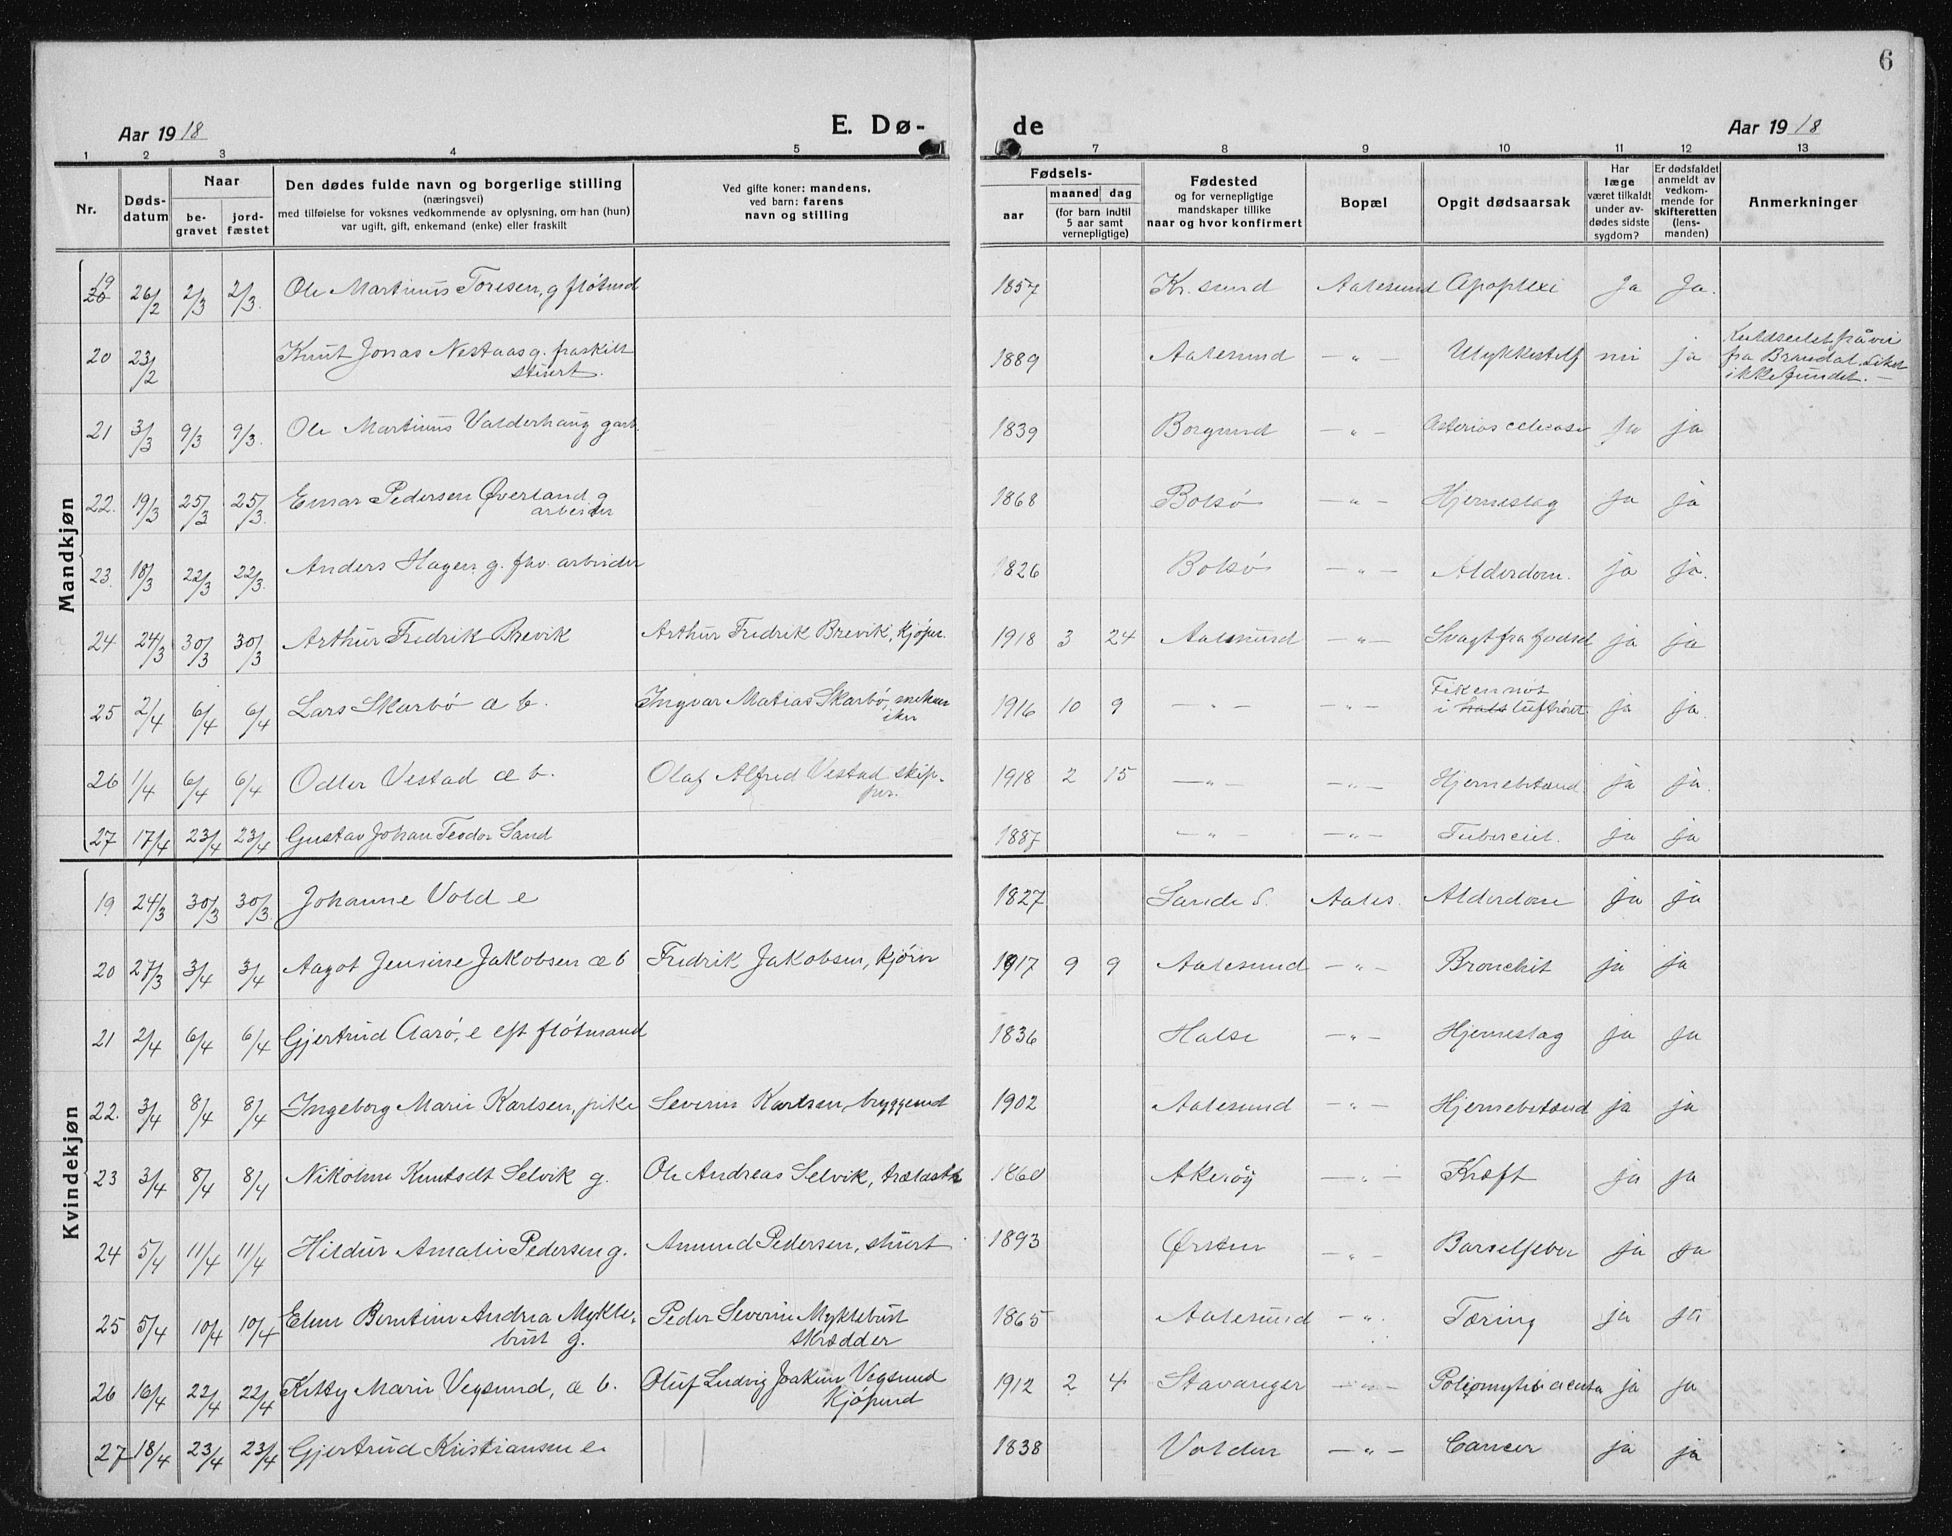 6
Aar 1918 E. Dø- de Aar 1918
1 2 3 4 5 7 8 9 10 11 12 13
Nr. Døds-datum Naar be-gravet jord-fæstet Den dødes fulde navn og borgerlige stilling (næringsvei) med tilføielse for voksnes vedkommende av oplysning, om han (hun) var ugift, gift, enkemand (enke) eller fraskilt Ved gifte koner: mandens, ved barn: farens navn og stilling Fødsels- aar maaned dag (for barn indtil 5 aar samt vernepligtige) Fødested og for vernepligtige mandskaper tillike naar og hvor konfirmert Bopæl Opgit dødsaarsak Har læge været tilkaldt under av-dødes sidste sygdom? Er dødsfaldet anmeldt av vedkom-mende for skifteretten (lens-manden) Anmerkninger
Mandkjøn
19 20 26/2 2/3 2/3. Ole Martinus Toresen, g fløtmd 1857 Kr. sund Aalesund Apoplexi Ja Ja.
20 23/2 Knut Jonas Nestaas g. fraskilt stuert. 1889 Aalesund — " — Ulykkestilf nei ja
fra Brandal. Liket ikke fundet. —
21 3/3 9/3 9/3. Ole Martinus Valderhaug g arb. 1839 Borgund — " — ja ja
22. 19/3 25/3 25/3. Einar Pedersen Øverland g arbeider 1868 Bolsø — " — Hjerneslag ja ja
23. 18/3 22/3 22/3. Anders Hagen g. fhv. arbeider 1826 Bolsø — " — Alderdom. ja ja.
24 24/3 30/3 30/3 Arthur Fredrik Brevik Arthur Fredrik Brevik, kjøpm. 1918 3 24 Aalesund — " — Svagt fra fødsel ja ja
25 2/4 6/4 6/4 Lars Skarbø æ b. Ingvar Matias Skarbø, mekaniker 1916 10 9 — " — — " — i hals luftrøret. ja ja.
26 1/4 6/4 6/4 Odler Vestad æ b. Olaf Alfred Vestad skipper. 1918 2 15 — " — — " — Hjernebetænd. ja ja.
27 17/4 23/4 23/4 Gustav Johan Teodor Sand 1887 — " — — " — Tubercul. ja ja
Kvindekjøn
19 24/3 30/3 30/3 Johanne Vold e 1827 Sande S. Aales. Alderdom ja ja
20 27/3 3/4 3/4 Aagot Jensine Jakobsen æ b Fredrik Jakobsen, kjører 1917 9 9 Aalesund — " — Bronchit ja ja
21 2/4 6/4 6/4 Gjertrud Aarø, e eft fløtmand 1836 Halse — " — Hjerneslag ja ja
22. 3/4 8/4 8/4 Ingeborg Marie Karlsen, pike Severin Karlsen, bryggemd 1902 Aalesund — " — Hjernebetænd ja ja
23 3/4 8/4 8/4 Nikoline Knutsdt Selvik g. Ole Andreas Selvik, trælasth 1860 Akerøy — " — Kræft ja ja
24 5/4 11/4 11/4 Hildur Amalie Pedersen g. Amund Pedersen, stuert 1893 Ørsten — " — Barselfeber ja ja
25 5/4 10/4 10/4 Elen Berntine Andrea Myklebust g. Peder Severin Myklebust skrædder 1865 Aalesund — " Tæring ja ja
26 16/4 22/4 22/4 Kitty Marie Vegsund, æ b. Oluf Ludvig Joakim Vegsund kjøpmd 1912 2 4 Stavanger — " — Poliomyelit acuta ja ja
27 18/4 23/4 23/4 Gjertrud Kristiansen e. 1838 Volden — " — Cancer ja ja